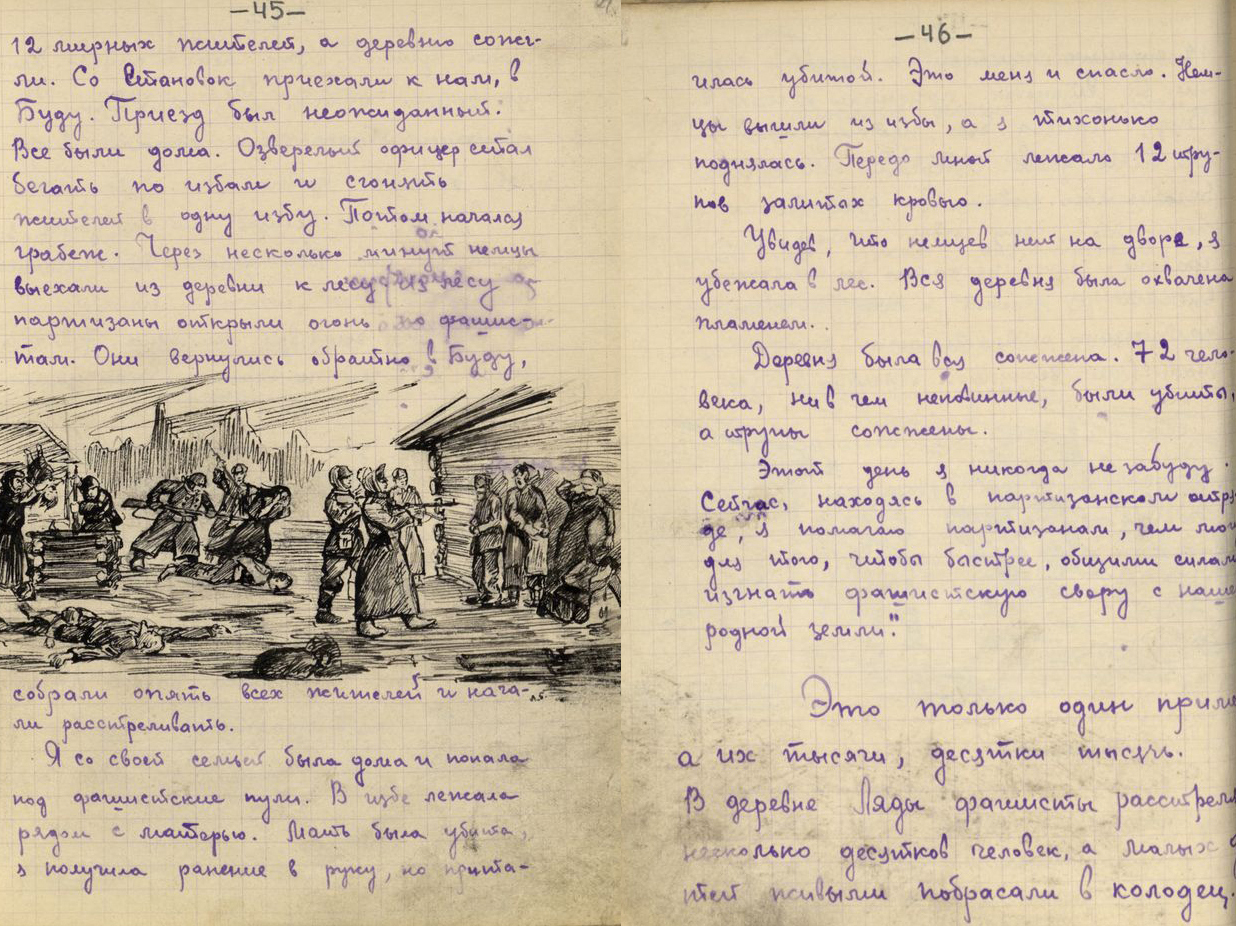 -45-
12 мирных жителей, а деревню сожг-
ли. Со Становок приехали к нам, в
Буду. Приезд был неожиданный.
Все были дома. Озверелый офицер стал
бегать по избам и сгонять
жителей в одну избу. Потом начался
грабеж. Через несколько минут немцы
выехали из деревни к лесу из лесу
партизаны открыли огонь по фашис-
там. Они вернулись обратно в Буду,
собрали опять всех жителей и нача-
ли расстреливать.
Я со своей семьей была дома и попала
под фашистские пули. В избе лежала
рядом с матерью. Мать была убита,
я получила ранение в руку, но прита-
-46-
илась убитой. Это меня и спасло. Нем-
цы вышли из избы, а я тихонько
поднялась. Передо мной лежало 12 тру-
пов залитых кровью.
Увидев, что немцев нет на дворе, я
убежала в лес. Вся деревня была охвачена
пламенем.
Деревня была вся сожжена. 72 чело-
века, ни в чем неповинные, были убиты,
а трупы сожжены.
Этот день я никогда не забуду.
Сейчас, находясь в партизанском отря-
де, я помогаю партизанам, чем мо
для того, чтобы быстрее, общими силам
изгнать фашистскую свору с наше
родной земли."
Это только один прим
а их тысячи, десятки тысяч.
В деревне Ляды фашисты расстрел
несколько десятков человек, а малых
тей живыми побрасали в колодец.